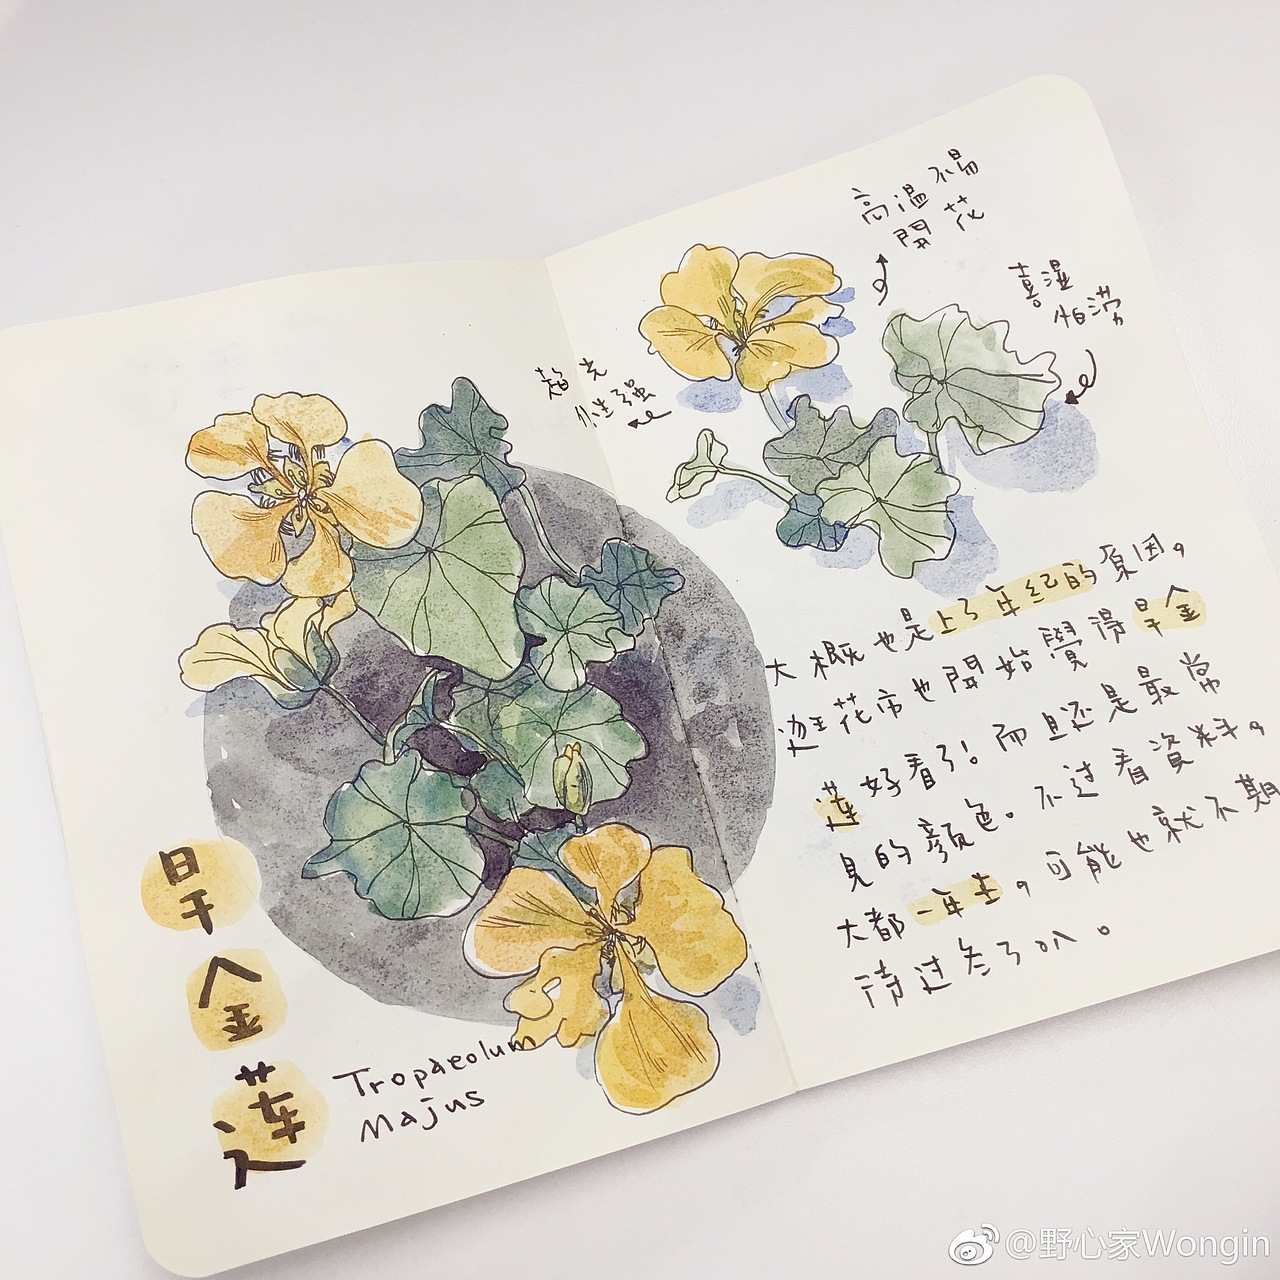 旱
金
蓮
Tropaeolum
Majus
高溫不易
開花
喜濕
怕澇
趋光
性强
大概也是上了年纪的原因，
逛花市也開始覺得旱金
莲好看了！而且还是最常
見的顏色。不过看資料，
大都一年生，可能也就不期
待过冬了叭。
@野心家Wongin